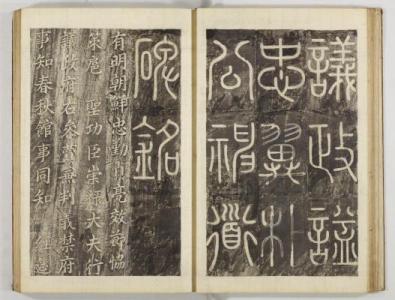 議政諡
忠翼朴
公神道
碑銘
有明朝鮮忠勤貞亮效節協
策扈 聖功臣崇祿大夫行
議政府右參贊兼判義禁府
事知春秋館事同知 經筵